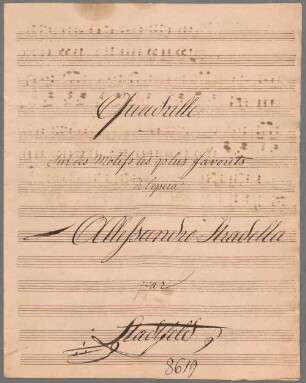 Quadrille
sur des Motifs les plus favorits
d'l'opera
Alessandro Stradella
par
Stadtfeld
8619